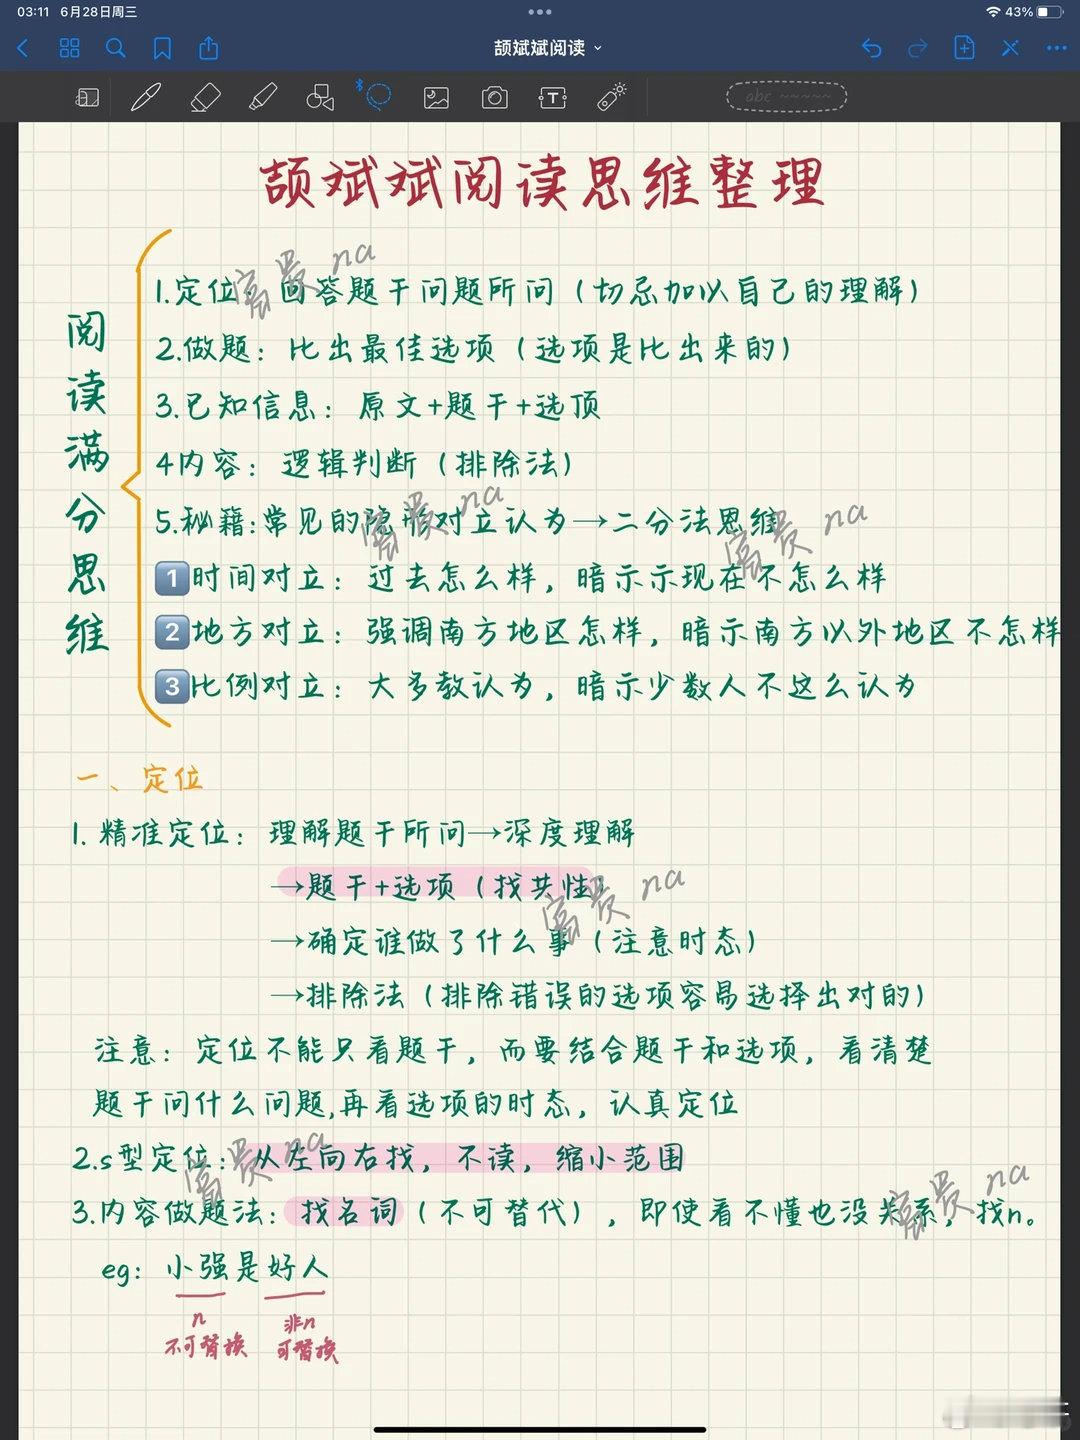 03:11 6月28日周三
43%
颉斌斌阅读
abc
颉斌斌阅读思维整理
阅读满分思维
1.定位: 回答题干问题所问（切忌加以自己的理解）
2.做题: 比出最佳选项（选项是比出来的）
3.已知信息: 原文+题干+选项
4内容: 逻辑判断（排除法）
5.秘籍:常见的隐形对立认为→二分法思维
1时间对立: 过去怎么样, 暗示示现在不怎么样
2地方对立: 强调南方地区怎样, 暗示南方以外地区不怎样
3比例对立: 大多数认为, 暗示少数人不这么认为
一、定位
1. 精准定位: 理解题干所问→深度理解
→题干+选项（找共性）
→确定谁做了什么事（注意时态）
→排除法（排除错误的选项容易选择出对的）
注意: 定位不能只看题干, 而要结合题干和选项, 看清楚
题干问什么问题,再看选项的时态, 认真定位
2.s型定位: 从左向右找, 不读, 缩小范围
3.内容做题法: 找名词（不可替代）, 即使看不懂也没关系, 找n。
eg: 小强是好人
n 非n
不可替换 可替换
富贵na
富贵na
富贵na
富贵na
富贵na
富贵na